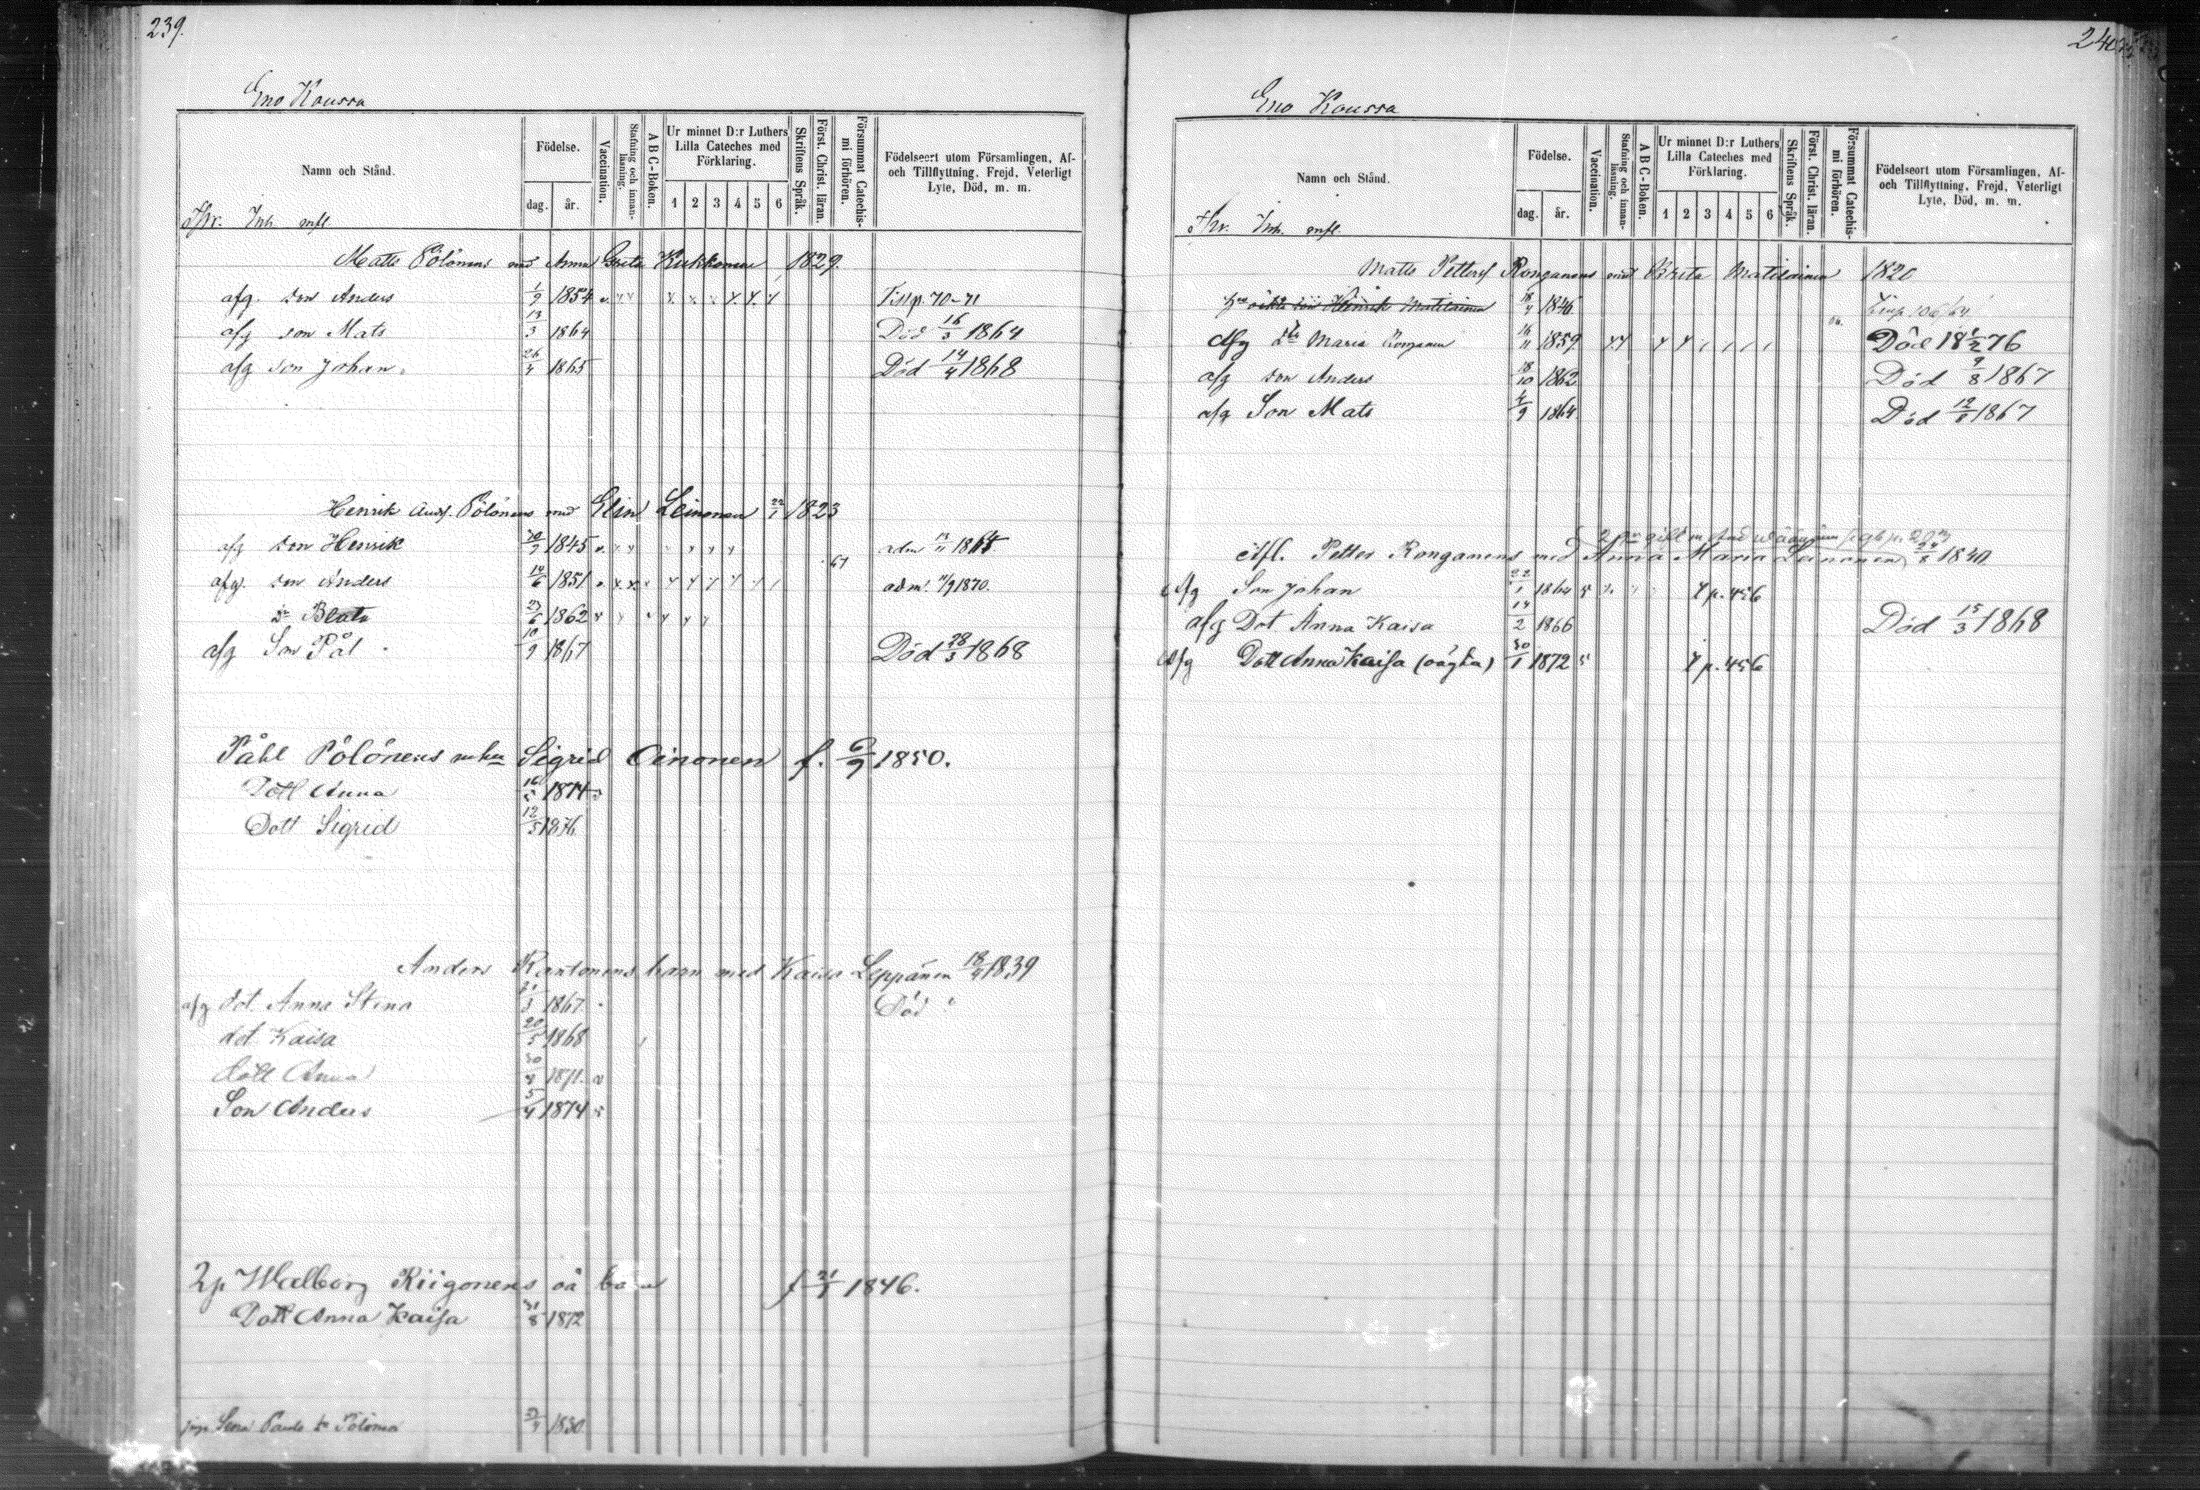 239.
Eno Kaussa
Namn och Stånd.
Födelse.
dag. år.
Vaccination.
Stafning och innan-läsning.
A B C-Boken.
Ur minnet D:r Luthers Lilla Cateches med Förklaring.
1 2 3 4 5 6
Skriftens Språk.
Först. Christ. läran.
Försummat Catechis-mi förhören.
Födelseort utom Församlingen, Af- och Tillflyttning, Frejd, Veterligt Lyte, Död, m. m.
Inh. mfl.
Matts Pölönens med Anna Greta Kukkonen 1829.
afg. son Anders 1/9 1854 p. 70-71
afg son Mats 13/3 1864 Död 16/3 1864
afg son Johan 26/4 1865 Död 14/4 1868
Henrik Andf. Pölönens med Elin Leinonen 22/1 1823
afg son Henrik 30/7 1845 adm 13/11 1865
afg. son Anders 14/6 1851 67 adm. 11/9 1870.
Beata 23/6 1862
afg Son Pål 10/9 1867 Död 28/3 1868
Påhl Pölönens Sigrid Oinonen f. 6/9 1850.
Dott Anna 16/5 1874
Dott Sigrid 12/5 1876
Anders Rantonens barn med Kaisa Leppänen 18/4 1839
afg dot. Anna Stina 21/3 1867 Död
dot Kaisa 20/5 1868
dott Anna 1871
Son Anders 5/4 1874
2p Walborg Riigonens oä barn f 21/1 1846.
Dott Anna Kaisa 31/8 1872
Pölönen 1850
240
Eno Kaussa
Namn och Stånd.
Födelse.
dag. år.
Vaccination.
Stafning och innan-läsning.
A B C-Boken.
Ur minnet D:r Luthers Lilla Cateches med Förklaring.
1 2 3 4 5 6
Skriftens Språk.
Först. Christ. läran.
Försummat Catechis-mi förhören.
Födelseort utom Församlingen, Af- och Tillflyttning, Frejd, Veterligt Lyte, Död, m. m.
Inh. mfl.
Matts Pettersf Ronganens med Brita Matilainen 1820
oäkta son Henrik Matilainen 18/4 1846
Afg Maria Ronganen 16/11 1859 Död 18 76
afg son Anders 18/10 1862 Död 9/8 1867
afg Son Mats 4/9 1864 Död 12/8 1867
2 gift m.
Afl. Petter Ronganens med Anna Maria Leinonen 1840
Afg Son Johan 22/1 1864 p. 456
afg Dot Anna Kaisa 14/2 1866 Död 15/3 1868
Afg Dott Anna Kaisa (oägta) 30/1 1872 p. 456